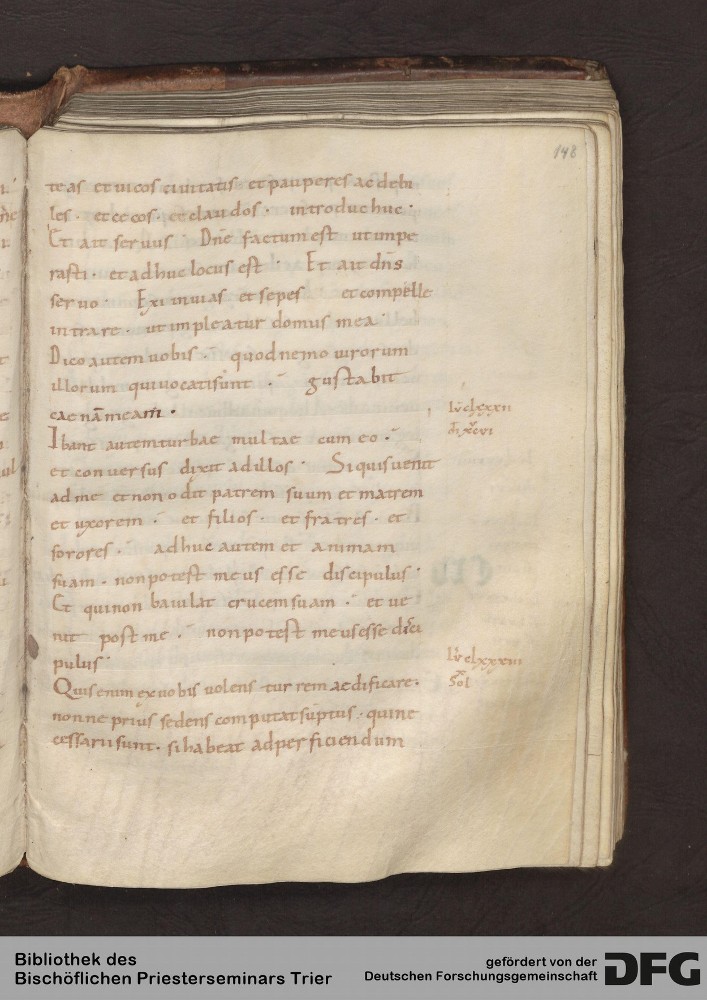 148
teas et uicos ciuitatis · et pauperes ac debi
les · et cecos · et claudos · introduc huc ·
Et ait seruus · Dn̄e factum est ut impe
rasti · et adhuc locus est · Et ait dn̄s
seruo · Exi in uias et sepes et compelle
intrare · ut impleatur domus mea ·
Dico autem uobis · quod nemo uirorum
illorum qui uocati sunt · gustabit
caenā meam ·
Ibant autem turbae multae cum eo ·
et conuersus dixit ad illos · Si quis uenit
ad me et non odit patrem suum et matrem
et uxorem · et filios · et fratres · et
sorores · adhuc autem et animam
suam · non potest meus esse discipulus ·
Et qui non baiulat crucem suam · et ue
nit post me · non potest meus esse disci
pulus ·
Quis enim ex uobis uolens turrem aedificare ·
nonne prius sedens computat sūptus · qui ne
cessarii sunt · si habeat ad perficiendum
lū clxxxii
lū clxxxiii
Sol
Bibliothek des
Bischöflichen Priesterseminars Trier
gefördert von der
Deutschen Forschungsgemeinschaft
DFG